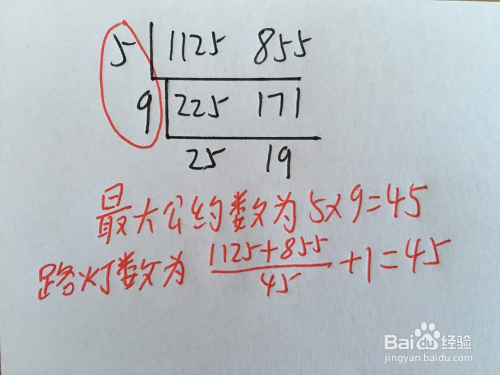 5 1125 855
9 225 171
25 19
最大公约数为5×9=45
路灯数为 (1125+855)/45 +1=45
Bai度经验
jingyan.baidu.com